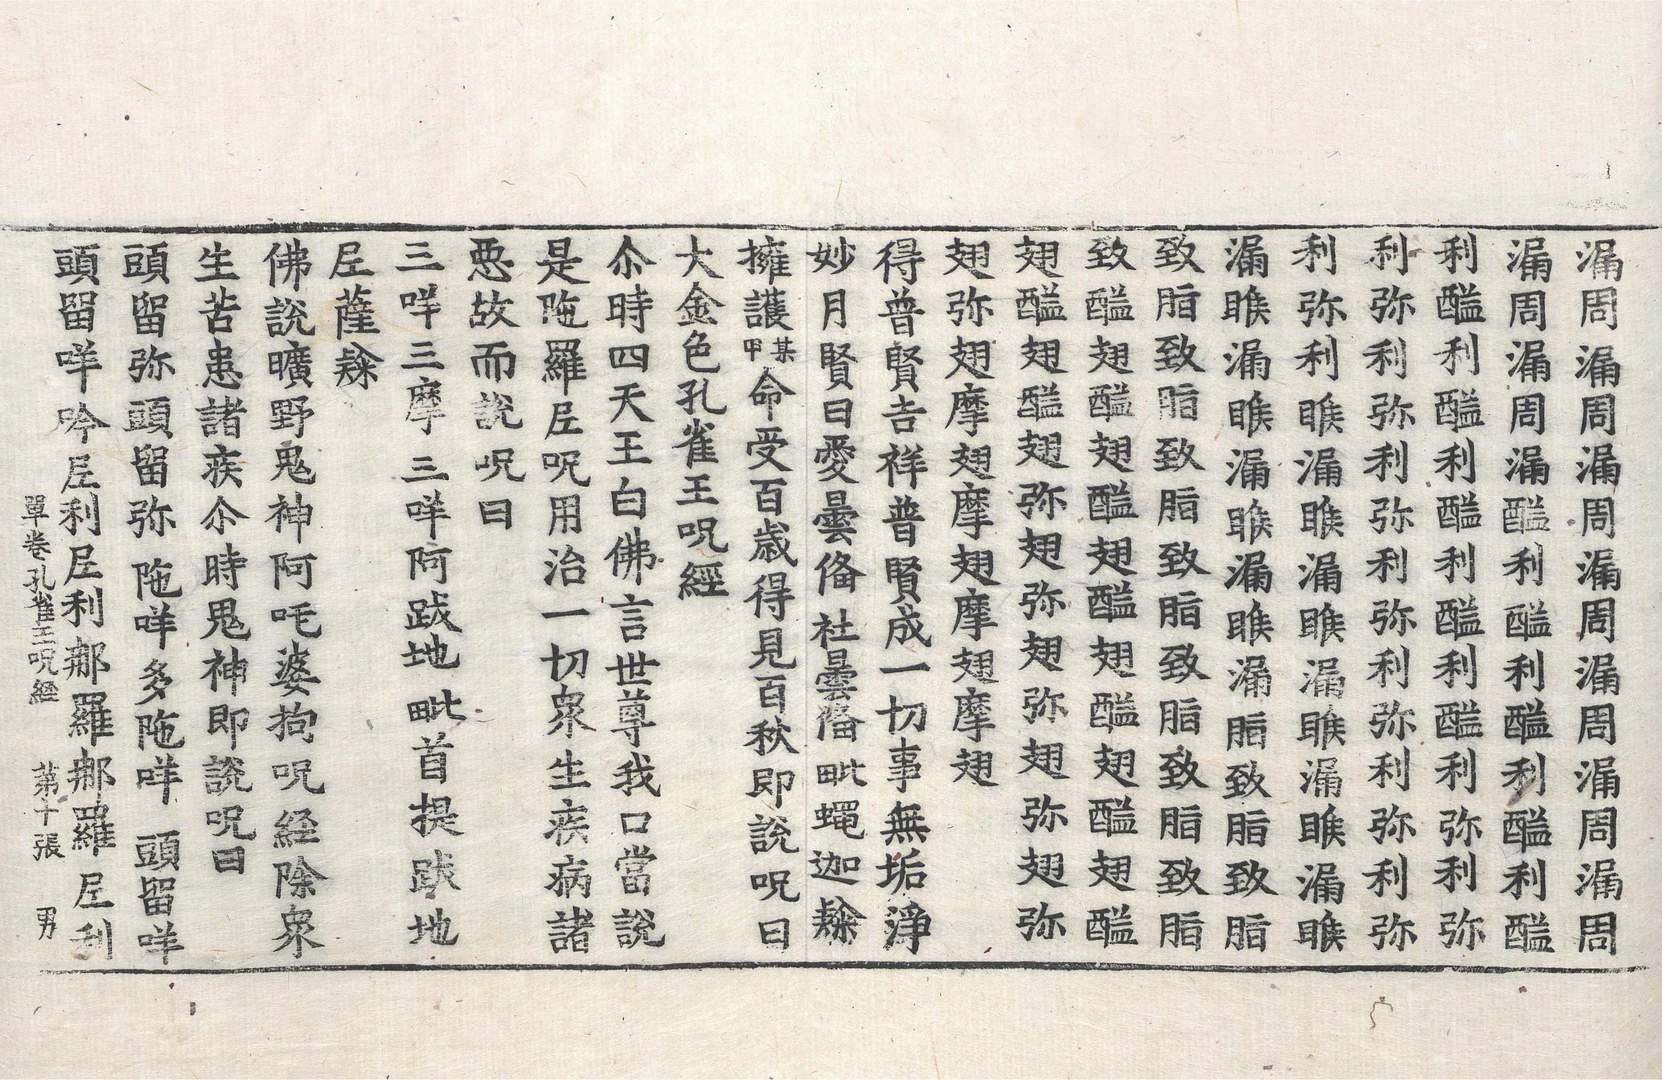 漏周漏周漏周漏周漏周漏周漏周
漏周漏周漏醯利醯利醯利醯利醯
利醯利醯利醯利醯利醯利弥利弥
利弥利弥利弥利弥利弥利弥利弥
利弥利睺漏睺漏睺漏睺漏睺漏睺
漏睺漏睺漏睺漏睺漏脂致脂致脂
致脂致脂致脂致脂致脂致脂致脂
致醯翅醯翅醯翅醯翅醯翅醯翅醯
翅醯翅醯翅弥翅弥翅弥翅弥翅弥
翅弥翅摩翅摩翅摩翅摩翅
得普賢吉祥普賢成一切事無垢淨
妙月賢日愛曇俻社曇俻毗蠅迦䠶
擁護某甲命受百歲得見百秋即說呪曰
大金色孔雀王呪經
尒時四天王白佛言世尊我口當說
是陁羅尼呪用治一切衆生疾病諸
惡故而說呪曰
三咩三摩三咩阿跋地毗首提跋地
尼薩䠶
佛說曠野鬼神阿吒婆拘呪經除衆
生苦患諸疾尒時鬼神即說呪曰
頭留弥頭留弥陁咩多陁咩頭留咩
頭留咩吟尼利尼利那羅那羅尼利
單卷孔雀王呪經 第十張 男